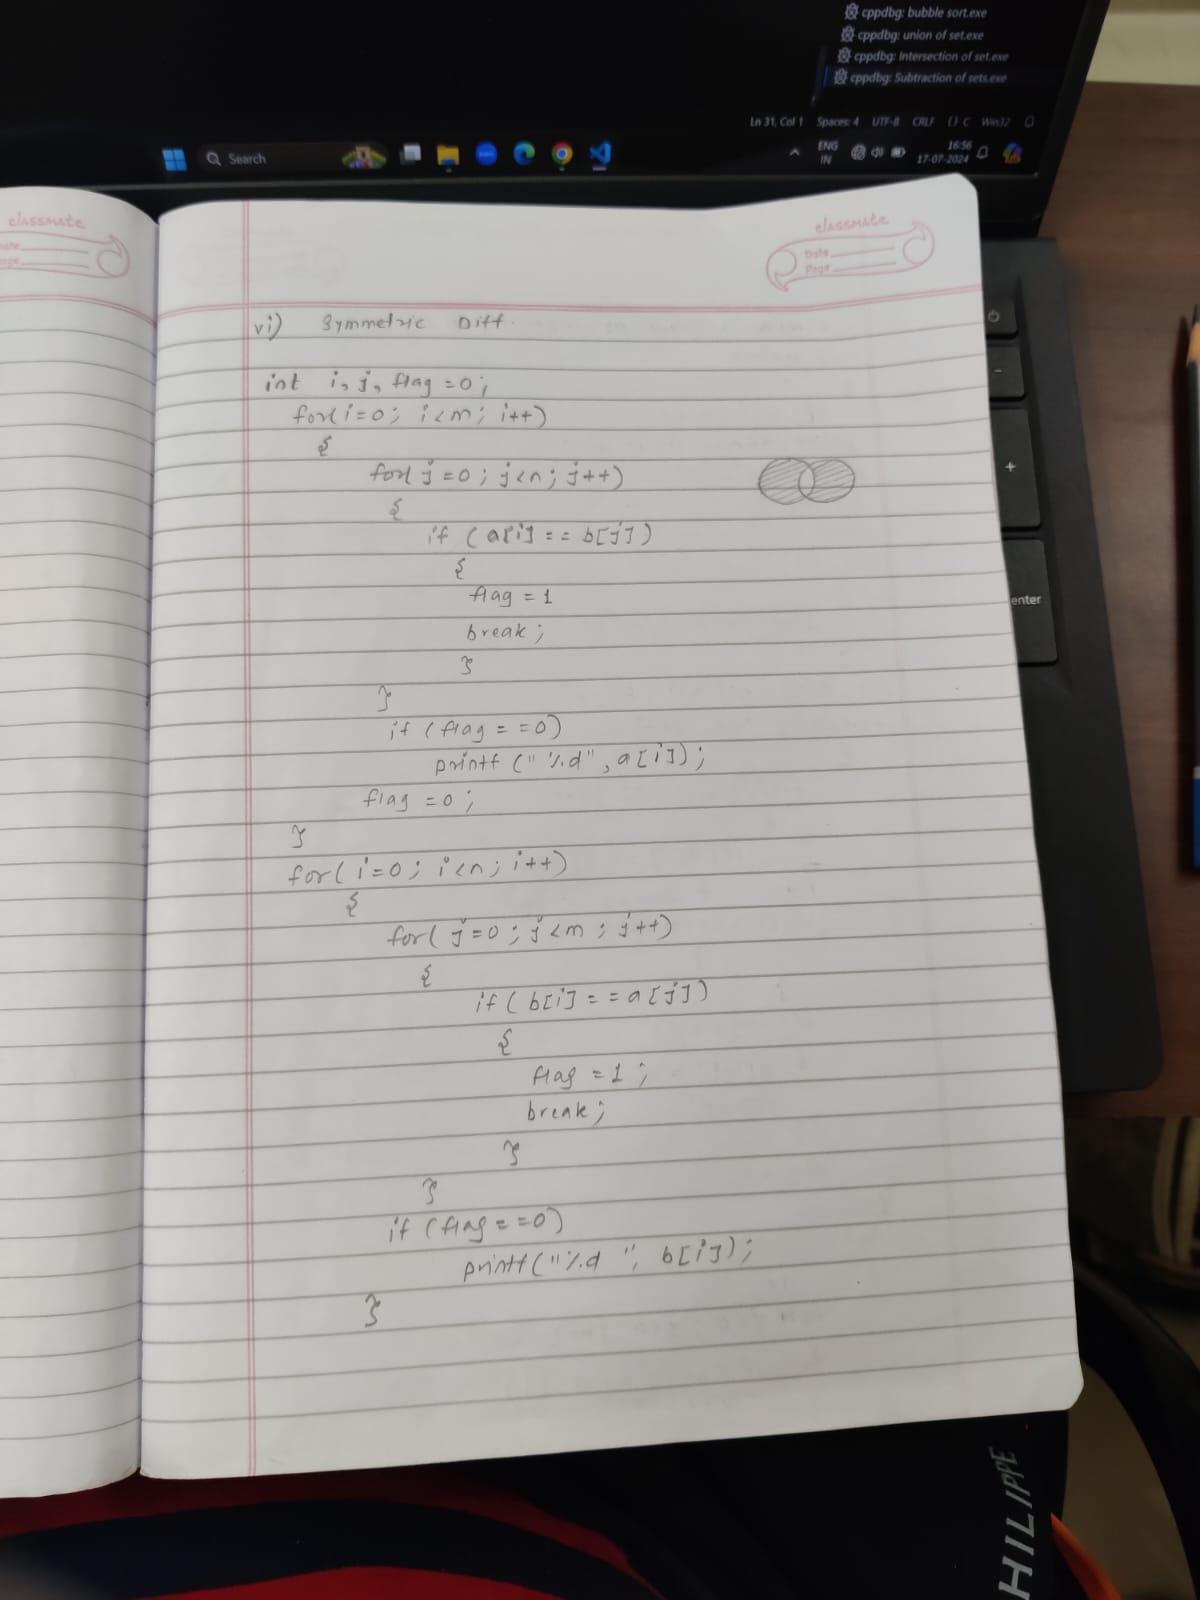 cppdbg: bubble sort.exe
cppdbg: union of set.exe
cppdbg: Intersection of set.exe
cppdbg: Subtraction of sets.exe
Ln 31, Col 1 Spaces: 4 UTF-8 CRLF {} C Win32
Search
ENG
IN
16:56
17-07-2024
classmate
classmate
Date
Page
vi) Symmetric Diff.
int i, j, flag = 0;
for(i=0; i<m; i++)
{
for(j=0; j<n; j++)
{
if (a[i] == b[j])
{
flag = 1
break;
}
}
if (flag == 0)
printf("%d", a[i]);
flag = 0;
}
for(i=0; i<n; i++)
{
for(j=0; j<m; j++)
{
if(b[i] == a[j])
{
flag = 1;
break;
}
}
if (flag == 0)
printf("%d ", b[i]);
}
+
enter
HILIPPE